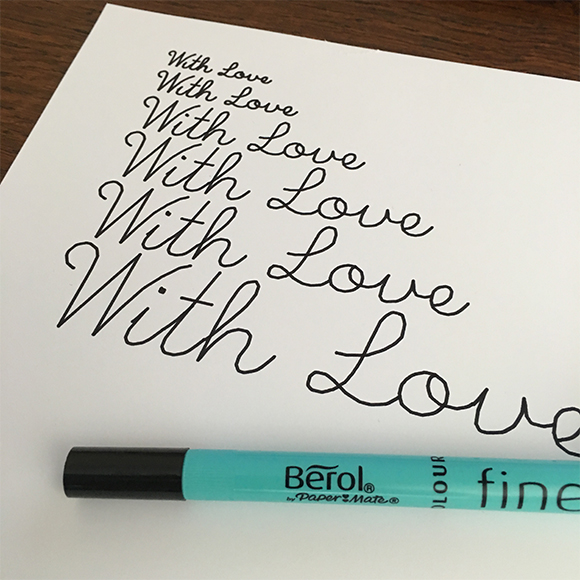 With Love
With Love
With Love
With Love
With Love
With Love
Berol®
by Paper Mate®
OLOUR
fine